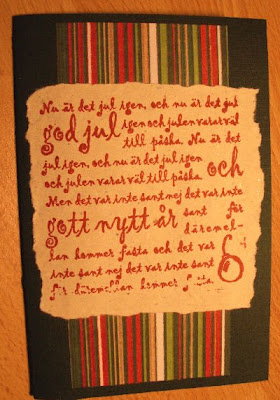 Nu är det jul igen, och nu är det jul
god jul igen och julen varar väl
till påska. Nu är det
jul igen, och nu är det jul igen
och julen varar väl till påska. och
Men det var inte sant nej det var inte
gott nytt år sant för
däremel-
lan kommer fasta och det var
inte sant nej det var inte sant
för däremellan kommer fasta.